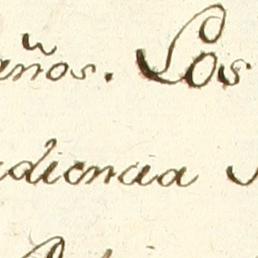 años. Los
diencia